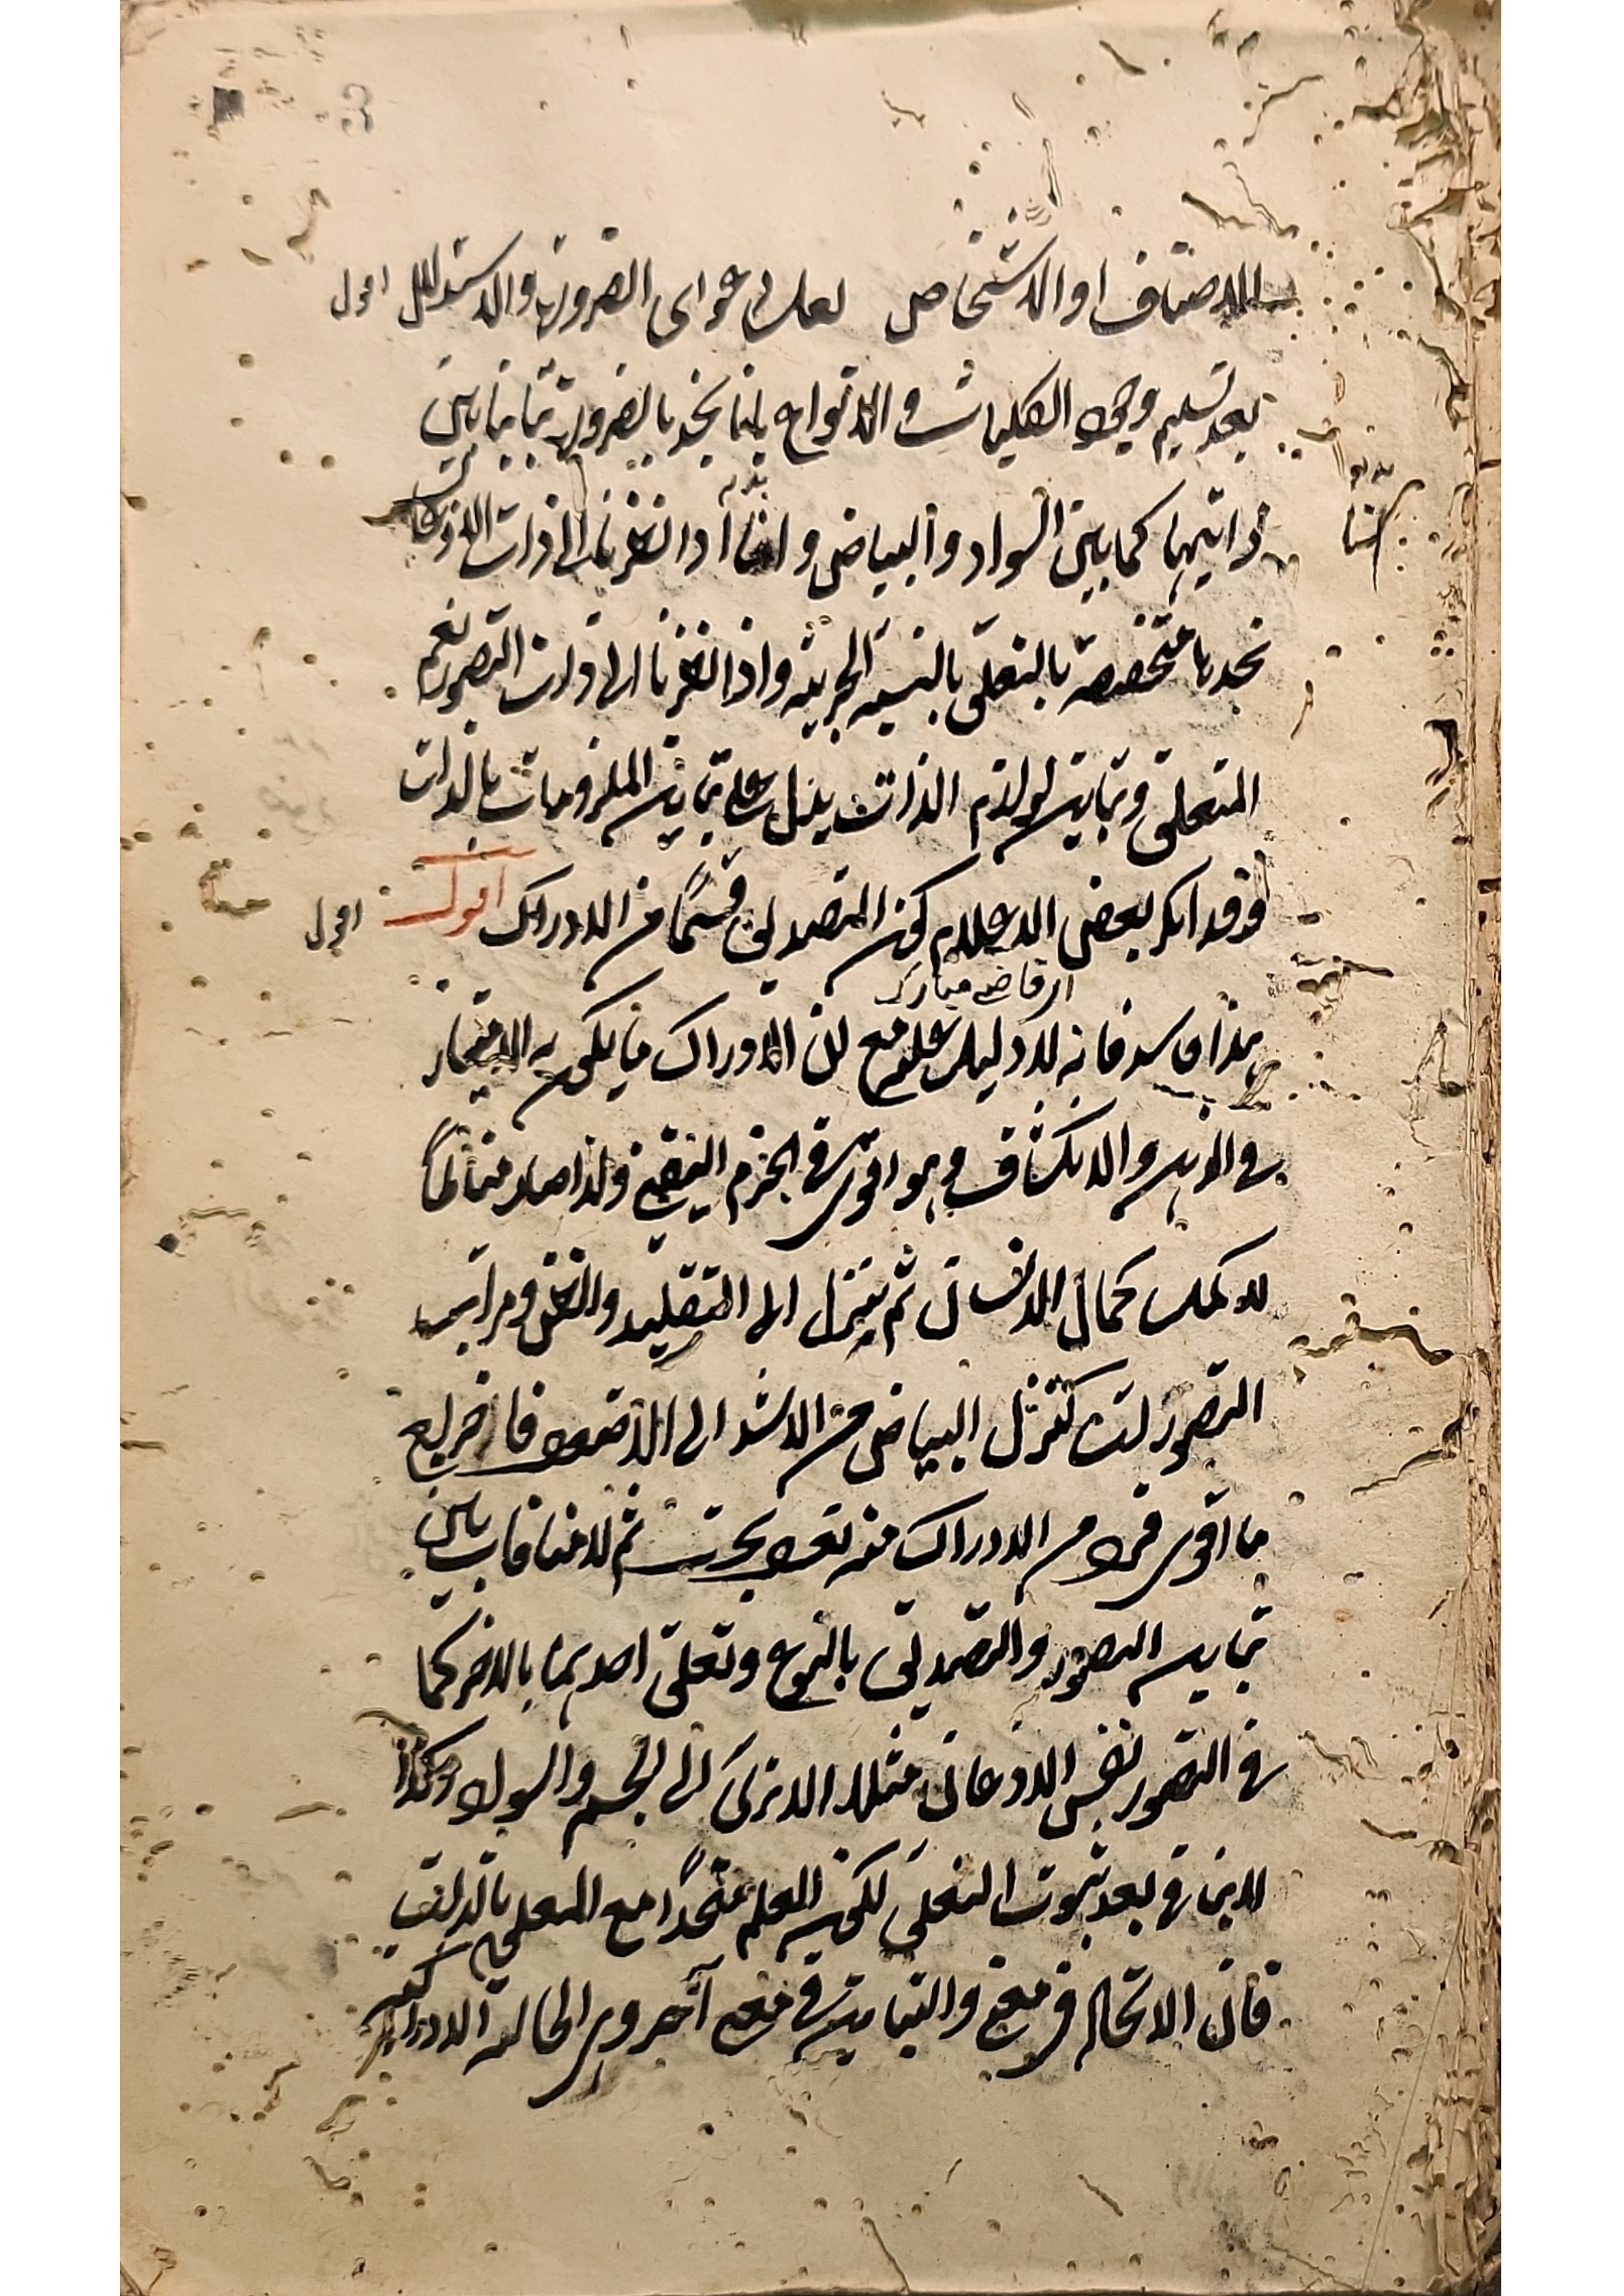 للاصناف او الاشخاص لعلى دعوى الضرورة والاستدلال اقول
بعد تسليم وجود الكليات والانواع باننا نجد بالضرورة تباينا بين
ذاتيهما كما بين السواد والبياض وانا اذا نظرنا الى ذات الاذعان
نجدها متخصصة بالتعلق بالنسبة الخبرية واذا نظرنا الى ذات التصور نعم
المتعلق وتباين لوازم الذات يدل على تباين الملزومات بالذات
وقد انكر بعض الاعلام كون التصديق قسما من الادراك اقول
اقول
اى قاضى مبارك
هذا فاسد فانه لا دليل عليه مع ان الادراك ما يكون به الامتياز
فى الذهن والانكشاف وهو اقوى فى الجزم اليقينى ولذا صار مناطا
لا كمل كمال الانسان ثم يتنزل الى التقليد والظن ومراتب
التصورات كتنزل البياض من الاشد الى الاضعف فاخراج
ما اقوى فرد من الادراك منه تعجب بحت ثم لا منافات بين
تباين التصور والتصديق بالنوع وتعلق احدهما بالاخر كما
فى التصور نفس الاذعان مثلا الا ترى الى الجسم والسواد وكذا
لا ينافى بعد ثبوت التعلق لكون العلم متحدا مع المعلوم بالذات
فان الاتحاد فى معنى والتباين فى معنى آخر وهى الحالة الادراكية